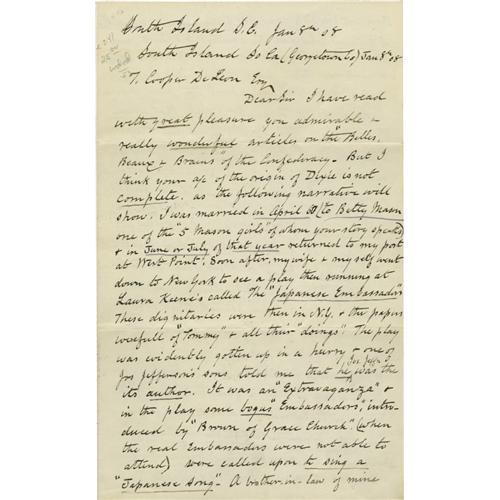 South Island S.C. Jan 8th 08
South Island So Ca (Georgetown Co) Jan 8th 08
T. Cooper De Leon Esq
Dear Sir I have read
with great pleasure you admirable &
really wonderful articles on the "Belles,
Beaux & Brains" of the Confederacy - But I
think your a/c of the origin of Dixie is not
complete, as the following narrative will
show. I was married in April 60 (to Betty Mason
one of the "5 Mason girls" of whom your story speaks)
& in June or July of that year returned to my post
at West Point. Soon after, my wife & myself went
down to New York to see a play then running at
Laura Keene's called The "Japanese Embassador"
These dignitaries were then in N.Y. & the papers
were full of "Tommy" & all their "doings". The play
was evidently gotten up in a hurry & one of
Jos Jefferson's sons told me that he, was the
its author. It was an "Extravaganza" &
in the play some bogus "Embassadors", intro-
duced by "Brown of Grace Church", (when
the real Embassadors were not able to
attend) were called upon to sing a
"Japanese Song". A brother-in-law of mine